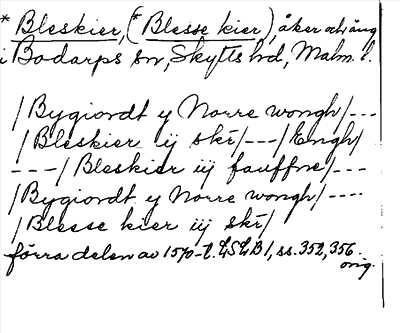 * Bleskier, (* Blesse kier), åker och äng
i Bodarps sn, Skytts hd, Malm. l.
/ Bygiordt y Norre wongh / ---
/ Bleskier iij skr / --- / Engh /
--- / Bleskier iij fauffne / ---
/ Bygiordt y Norre wongh / ----
/ Blesse kier iij skr /
förra delen av 1570-t. LSLB 1, ss. 352, 356.
orig.